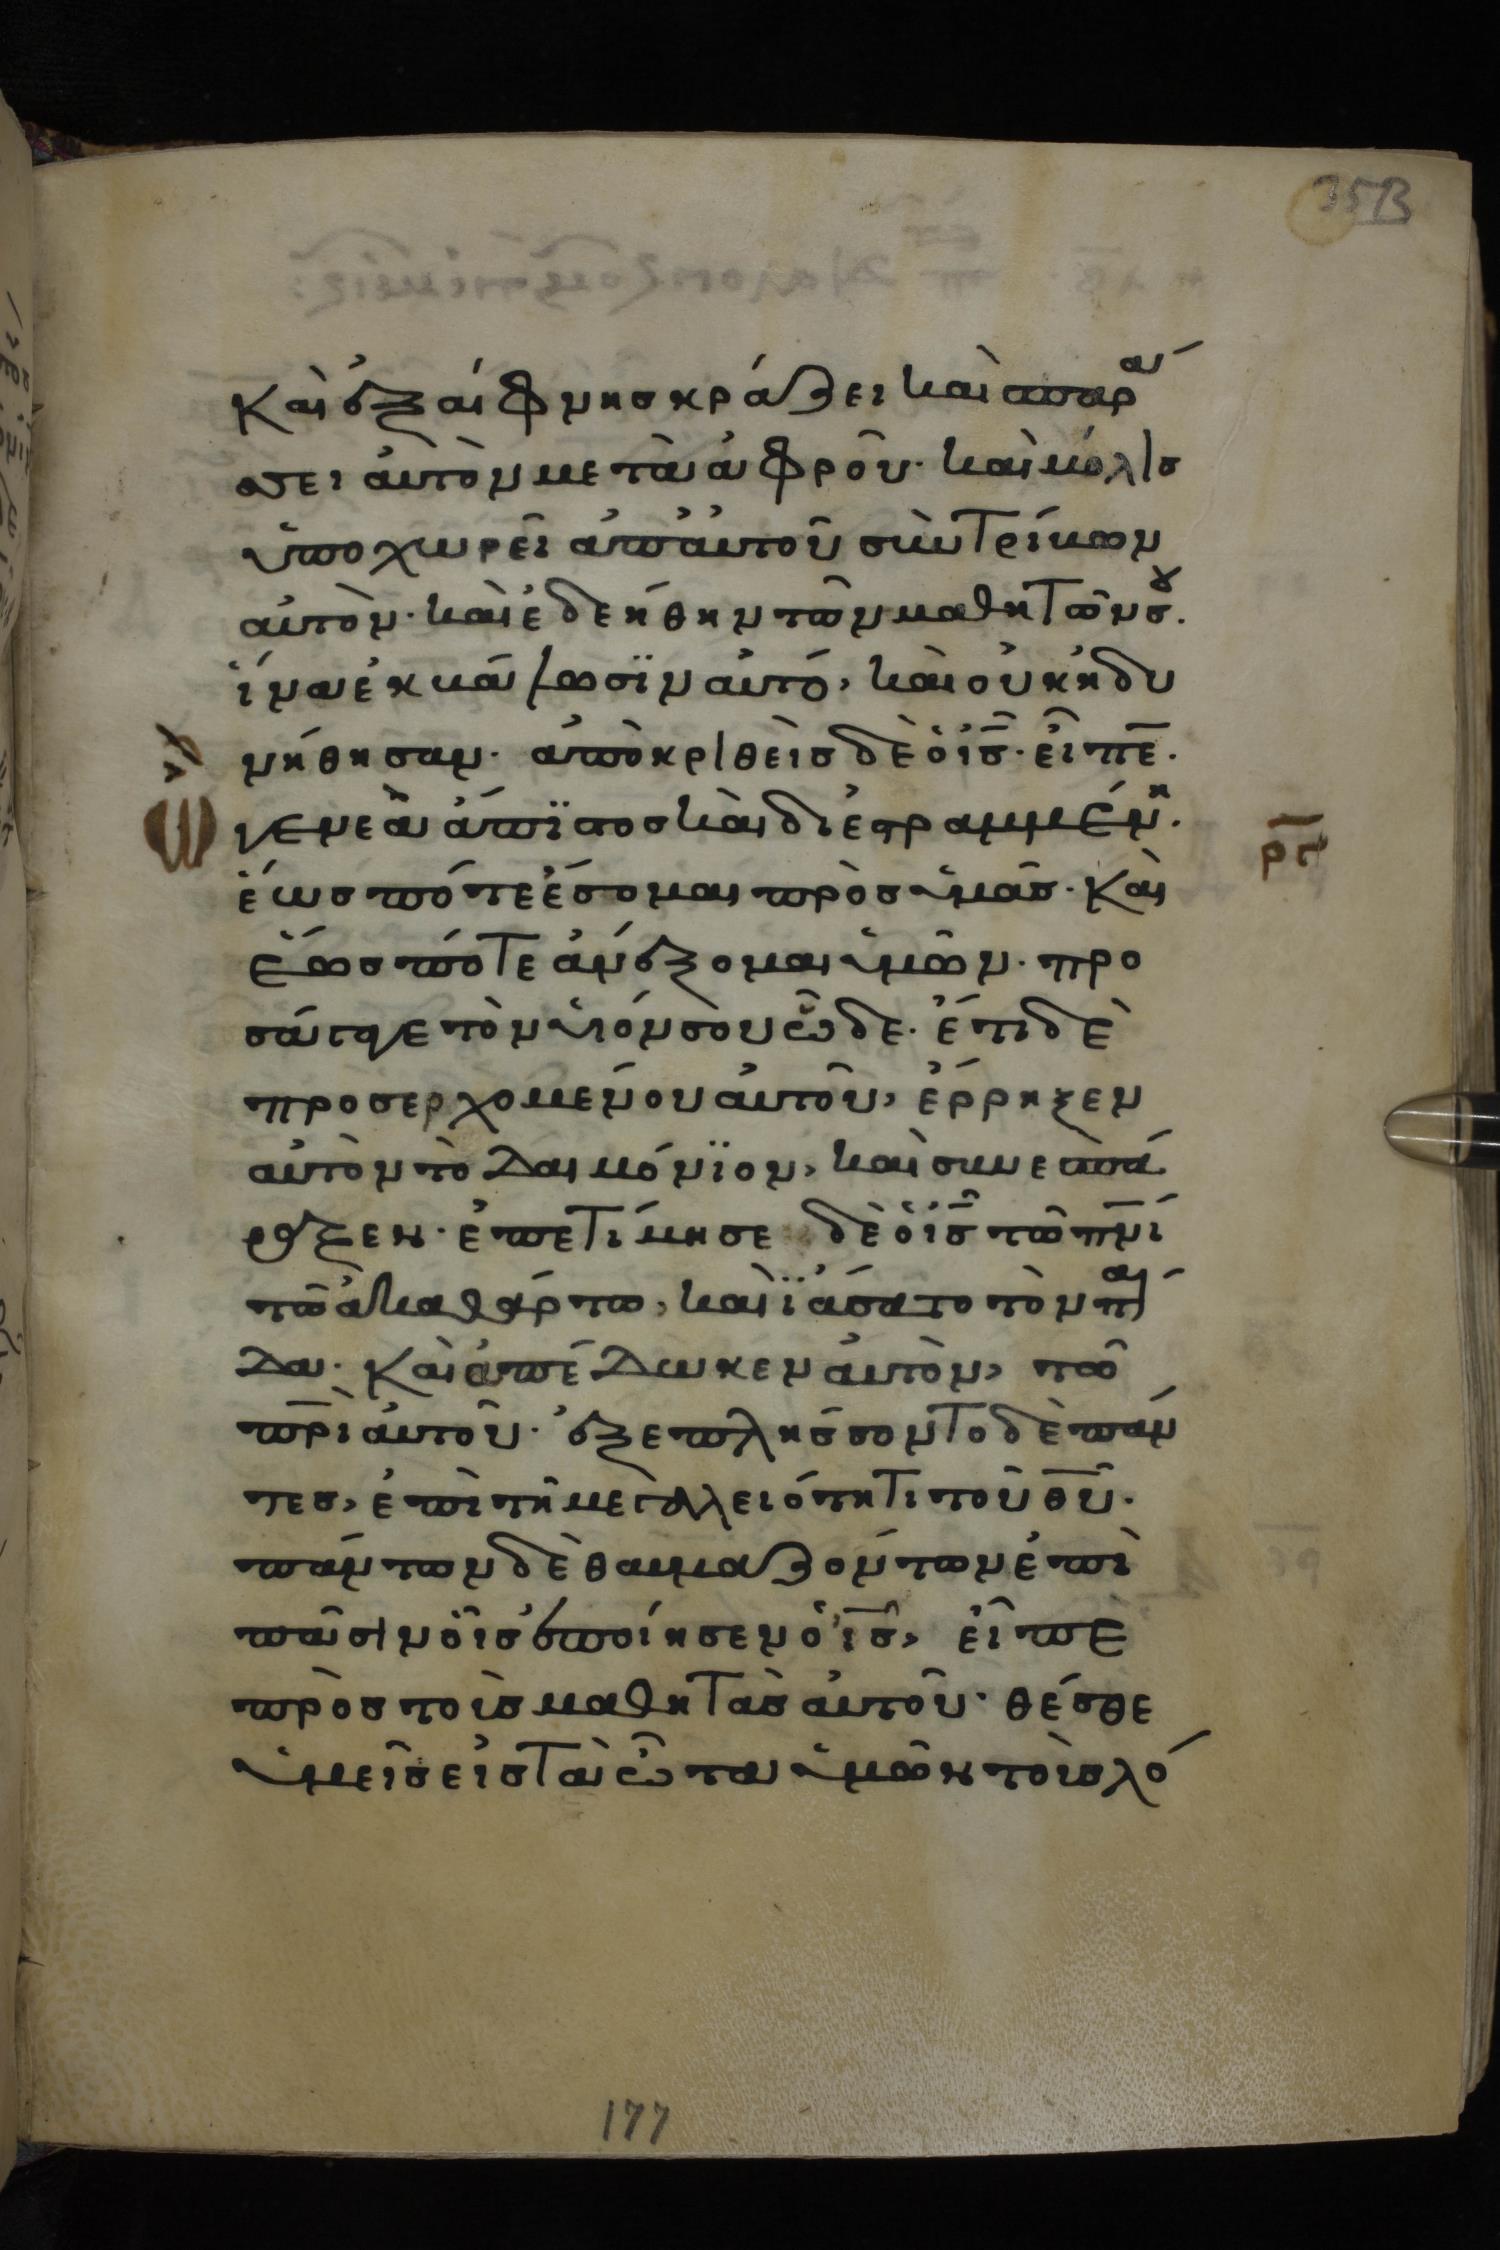 35B
καὶ ἐξαίφνης κράζει καὶ σπαρά
σσει αὐτὸν μετὰ ἀφροῦ· καὶ μόλις
ὑποχωρεῖ ἀπ' αὐτοῦ συντρίβων
αὐτόν· καὶ ἐδεήθην τῶν μαθητῶν σου.
ἵνα ἐκβάλωσϊν αὐτό, καὶ οὐκ ἠδυ
νήθησαν· ἀποκριθεὶς δὲ ὁ ις̅· εἶπε̅.
γενεὰ ἄπϊστος καὶ διεστραμμένη.
ἕως πότε ἔσομαι πρὸς ὑμᾶς· καὶ
ἕως πότε ἀνέξομαι ὑμῶν· προ
σάγαγε τὸν υἱόν σου ὧδε· ἔτι δὲ
προσερχομένου αὐτοῦ, ἔρρηξεν
αὐτὸν τὸ δαιμόνϊον, καὶ συνεσπά
ραξεν· ἐπετίμησε δὲ ὁ ις̅ τῶ πνι̅
τῶ ἀκαθάρτω, καὶ ϊάσατο τὸν παῖ
δα· καὶ ἀπέδωκεν αὐτὸν, τῶ
πρι̅ αὐτοῦ· ἐξεπλήσσοντο δὲ πάν
τες, ἐπὶ τῆ μεγαλειότητι τοῦ θυ̅·
πάντων δὲ θαυμαζόντων ἐπὶ
πᾶσιν οἷς ἐποίησεν ὁ ις̅, εἶπε
πρὸς τοὺς μαθητὰς αὐτοῦ· θέσθε
ὑμεῖς εἰς τὰ ὦτα ὑμῶν τοὺς λό
177